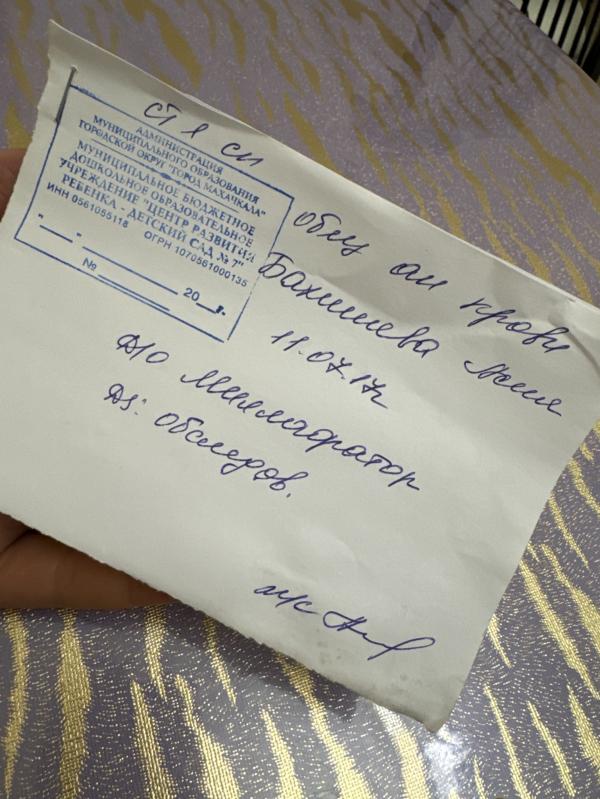 АДМИНИСТРАЦИЯ
МУНИЦИПАЛЬНОГО ОБРАЗОВАНИЯ
ГОРОДСКОЙ ОКРУГ "ГОРОД МАХАЧКАЛА"
МУНИЦИПАЛЬНОЕ БЮДЖЕТНОЕ
ДОШКОЛЬНОЕ ОБРАЗОВАТЕЛЬНОЕ
УЧРЕЖДЕНИЕ "ЦЕНТР РАЗВИТИЯ
РЕБЕНКА - ДЕТСКИЙ САД № 7"
ИНН 0561055118 ОГРН 1070561000135
"__" ________ 20__г.
№ ________
общ ан крови
Бахишева
11.07.17г
Д/о
Ds: обследов.
м/с